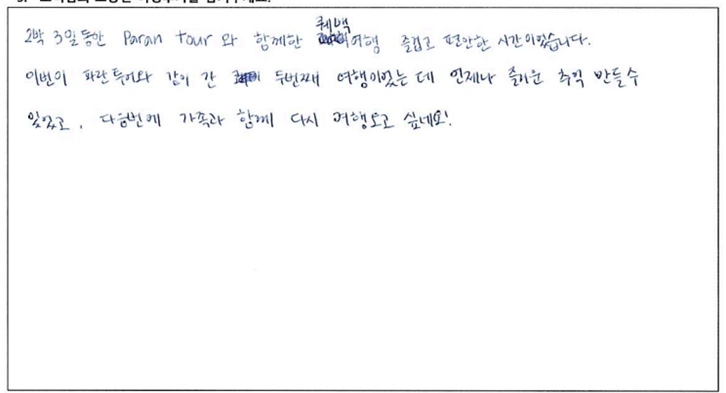 2박 3일동안 Paran tour 와 함께한 퀘백 여행 즐겁고 편안한 시간이었습니다.
이번이 파란투어와 같이 간 두번째 여행이었는 데 언제나 즐거운 추억 만들수
있었고, 다음번에 가족과 함께 다시 여행오고 싶네요!